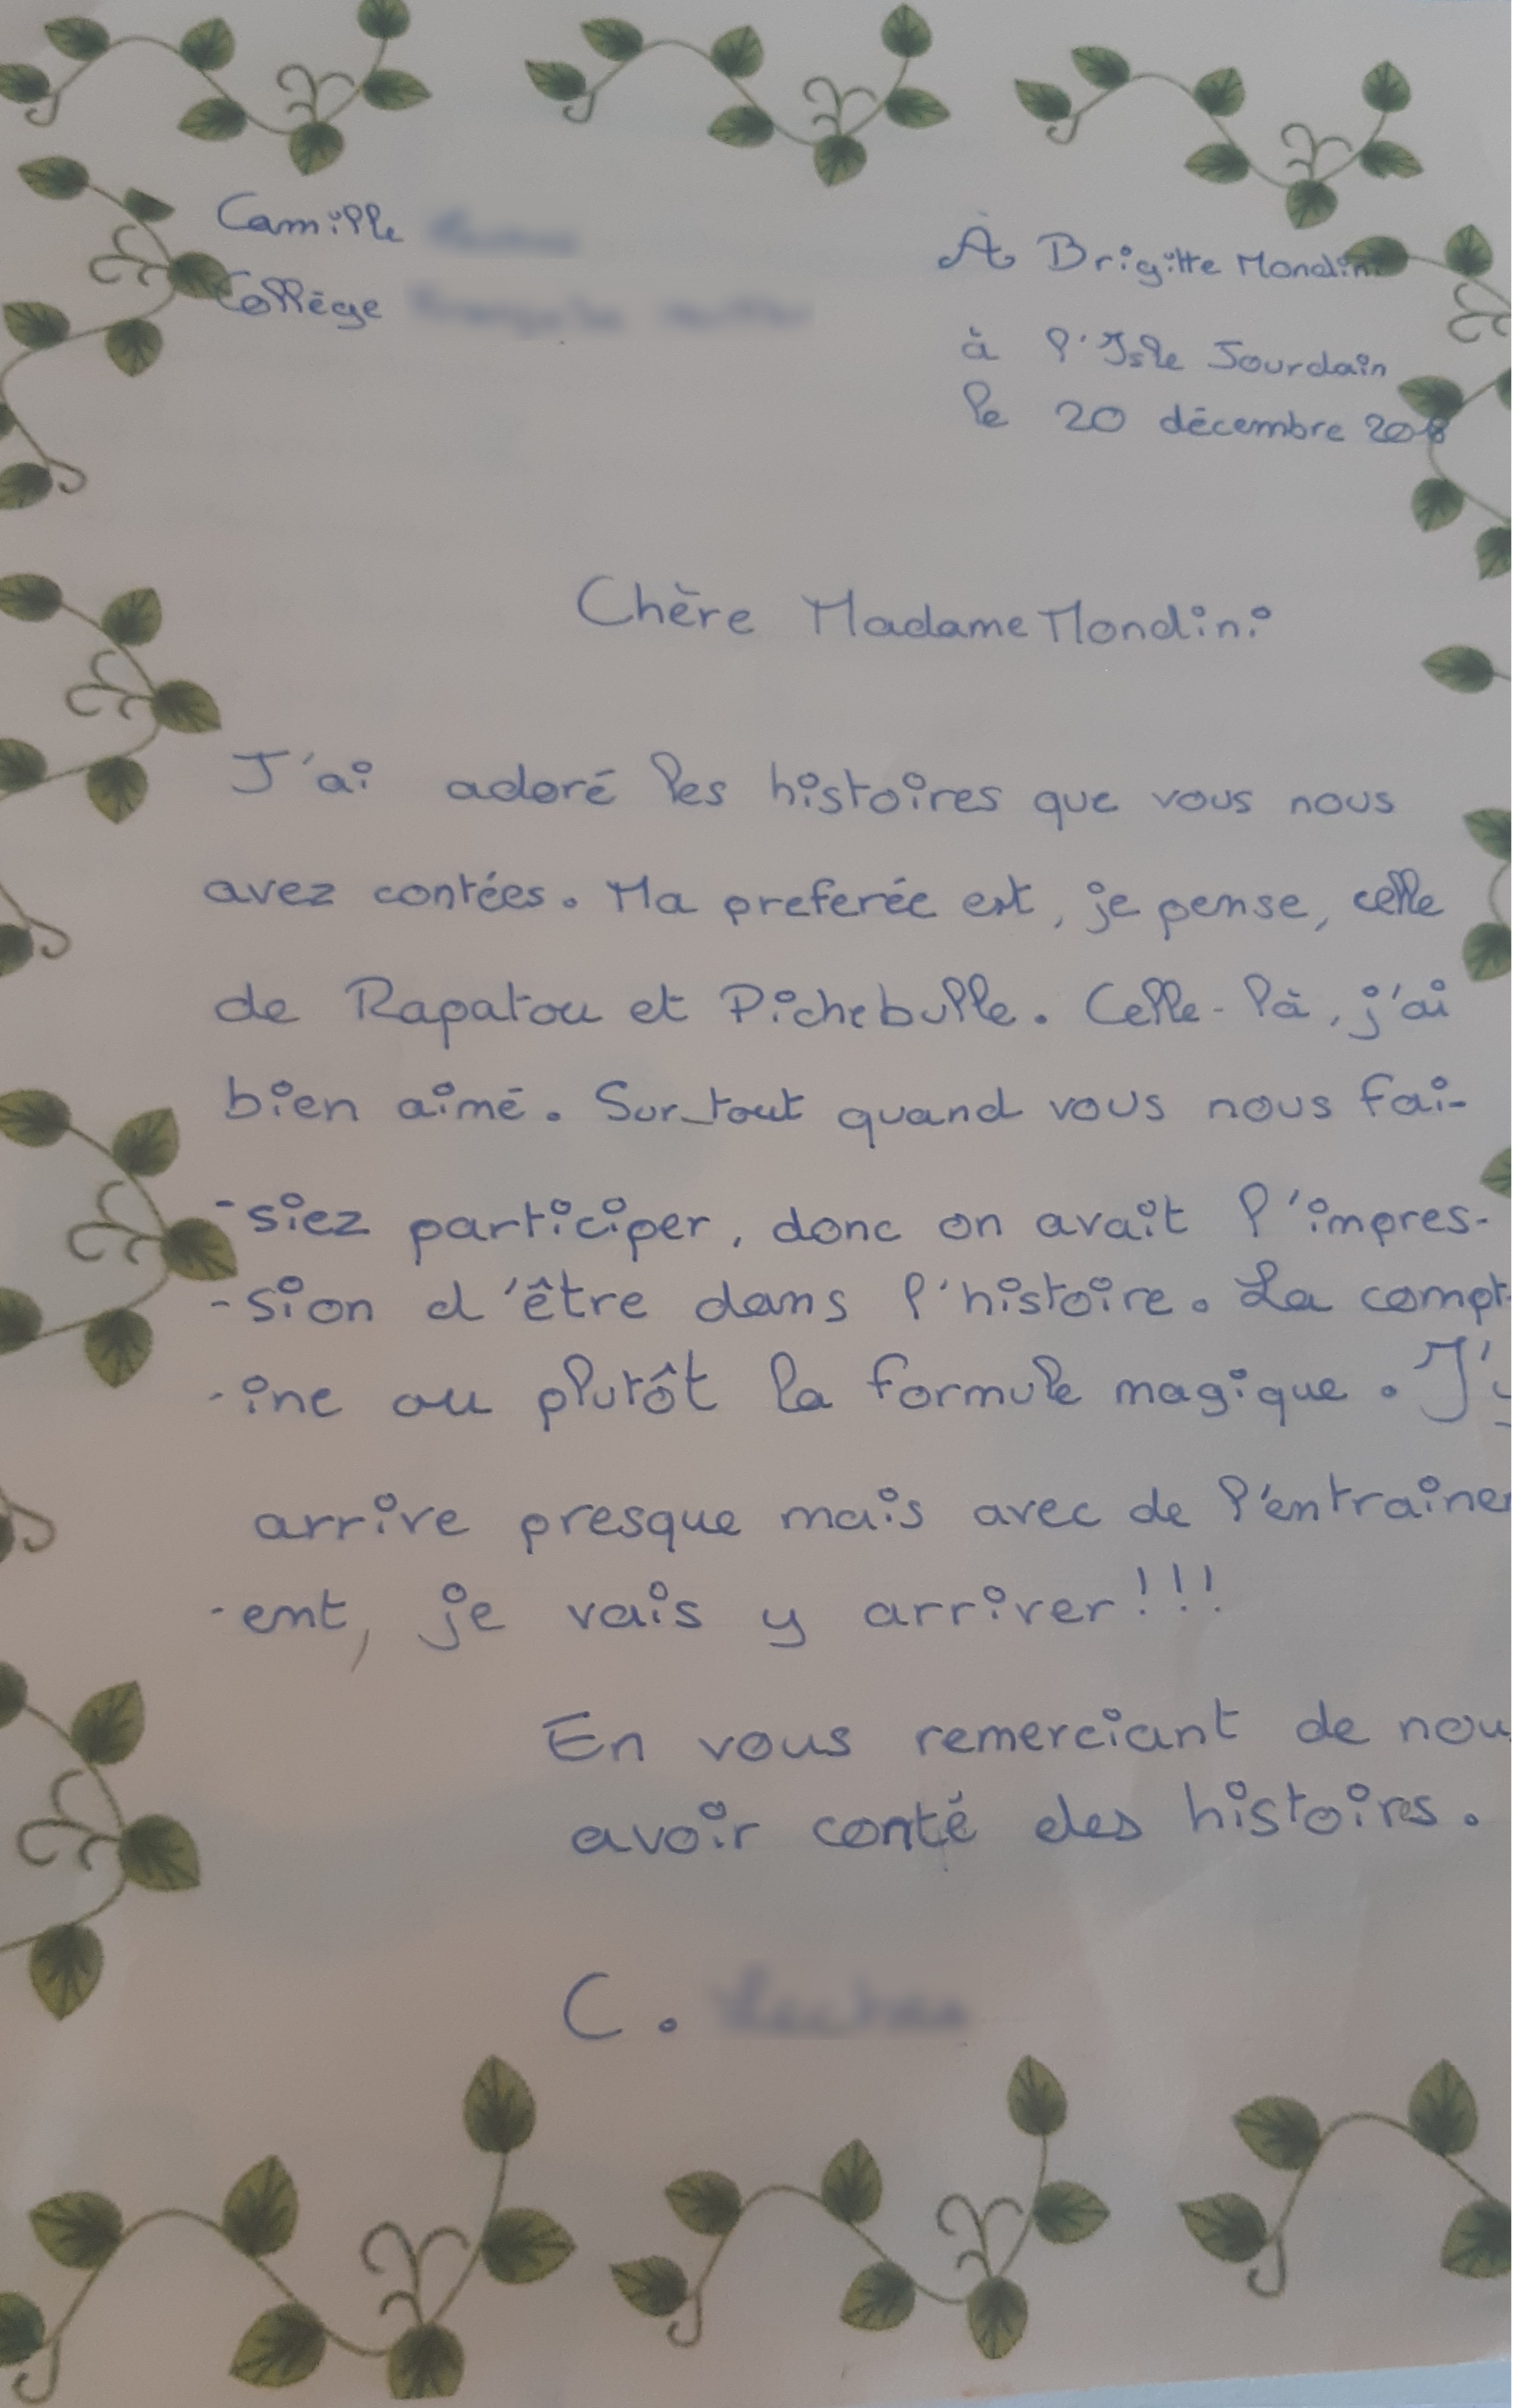 Camille
Collège
À Brigitte Mondini
à l'Isle Jourdain
le 20 décembre 2018
Chère Madame Mondini
J'ai adoré les histoires que vous nous
avez contées. Ma preferée est, je pense, celle
de Rapatou et Pichebulle. Celle-là, j'ai
bien aimé. Sur_tout quand vous nous fai-
-siez participer, donc on avait l'impres-
-sion d'être dans l'histoire. La compt-
-ine ou plutôt la formule magique. J'y
arrive presque mais avec de l'entrainem
-ent, je vais y arriver!!!
En vous remerciant de nou
avoir conté des histoires.
C.